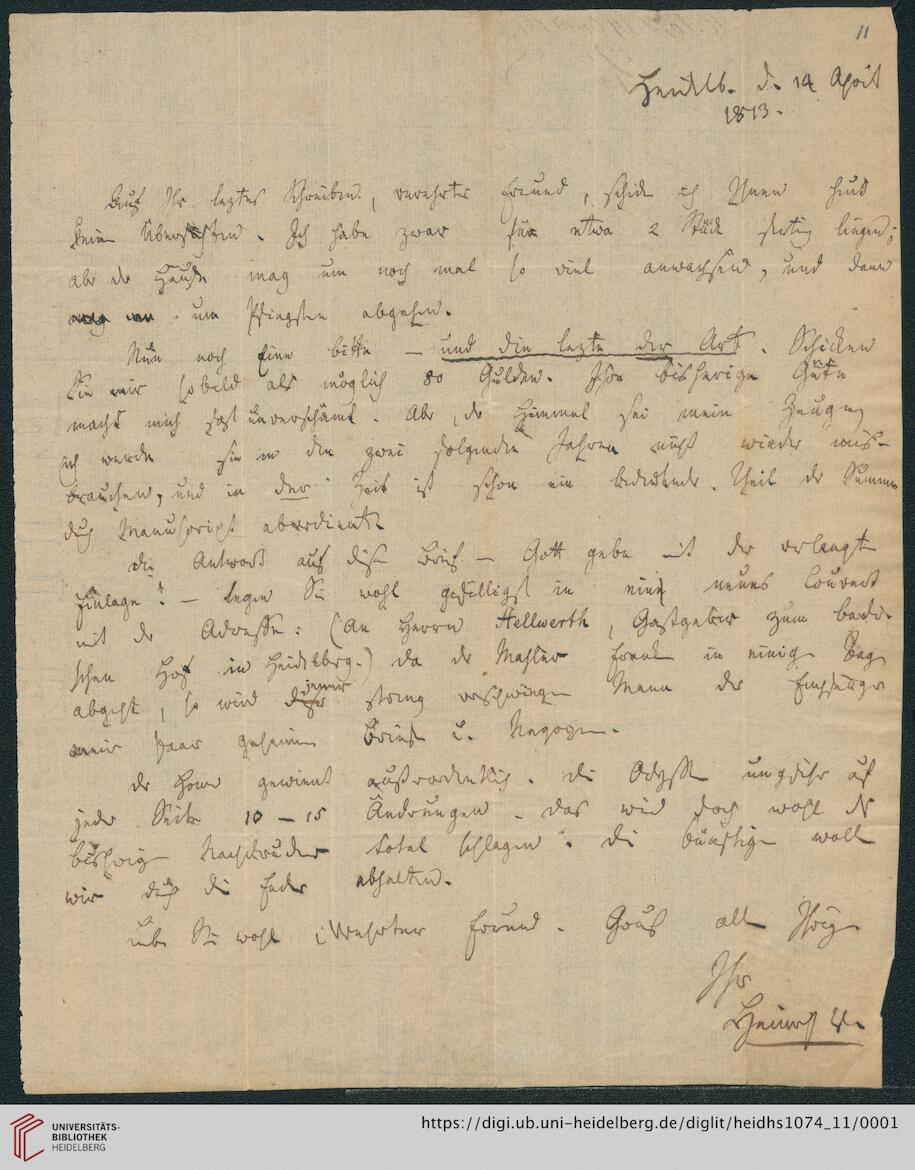 11
Heidelb. d. 14 April
1813.
Auf Ihr leztes Schreiben, verehrter Freund, schicke ich Ihnen heut
keine Übersezten. Ich habe zwar für etwa 2 Stück fertig liegen;
aber der Haufe mag um noch mal so viel anwachsen, und dann
um Pfingsten abgehen.
Nun noch Eine bitte — und die lezte der Art. Schicken
Sie mir sobald als möglich 80 Gulden. Ihre bisherige Güte
macht mich fast unverschämt. Aber, der Himmel sei mein Zeuge,
ich werde sie in den zwei folgenden Jahren nicht wieder mis-
brauchen, und in der Zeit ist schon ein bedeutender Theil der Summe
durch Manuscript
Die Antwort auf diesen Brief — Gott gebe mit der verlangten
Einlage! — legen Sie wohl gefälligst in ein neues Couvert
mit der Adresse: (An Herrn Hellwerth, Gastgeber zum badi-
schen Hof in Heidelberg.) da der Mahler in einigen Tagen
abgeht, so wird jener streng verschwiegene Mann der Empfänger
mein paar geheimen Briefe u.
Der Homer gewinnt außerordentlich. Die Odyssee ungefähr auf
jeder Seite 10 — 15 Ändrungen. Das wird doch wohl die
bisherigen Nachdrucker total schlagen. Die künftigen wollen
wir durch die Feder abhalten.
Leben Sie wohl, verehrter Freund. Gruß all Ihrigen
Ihr
Heinrich V.
UNIVERSITÄTS-
BIBLIOTHEK
HEIDELBERG
https://digi.ub.uni-heidelberg.de/diglit/heidhs1074_11/0001